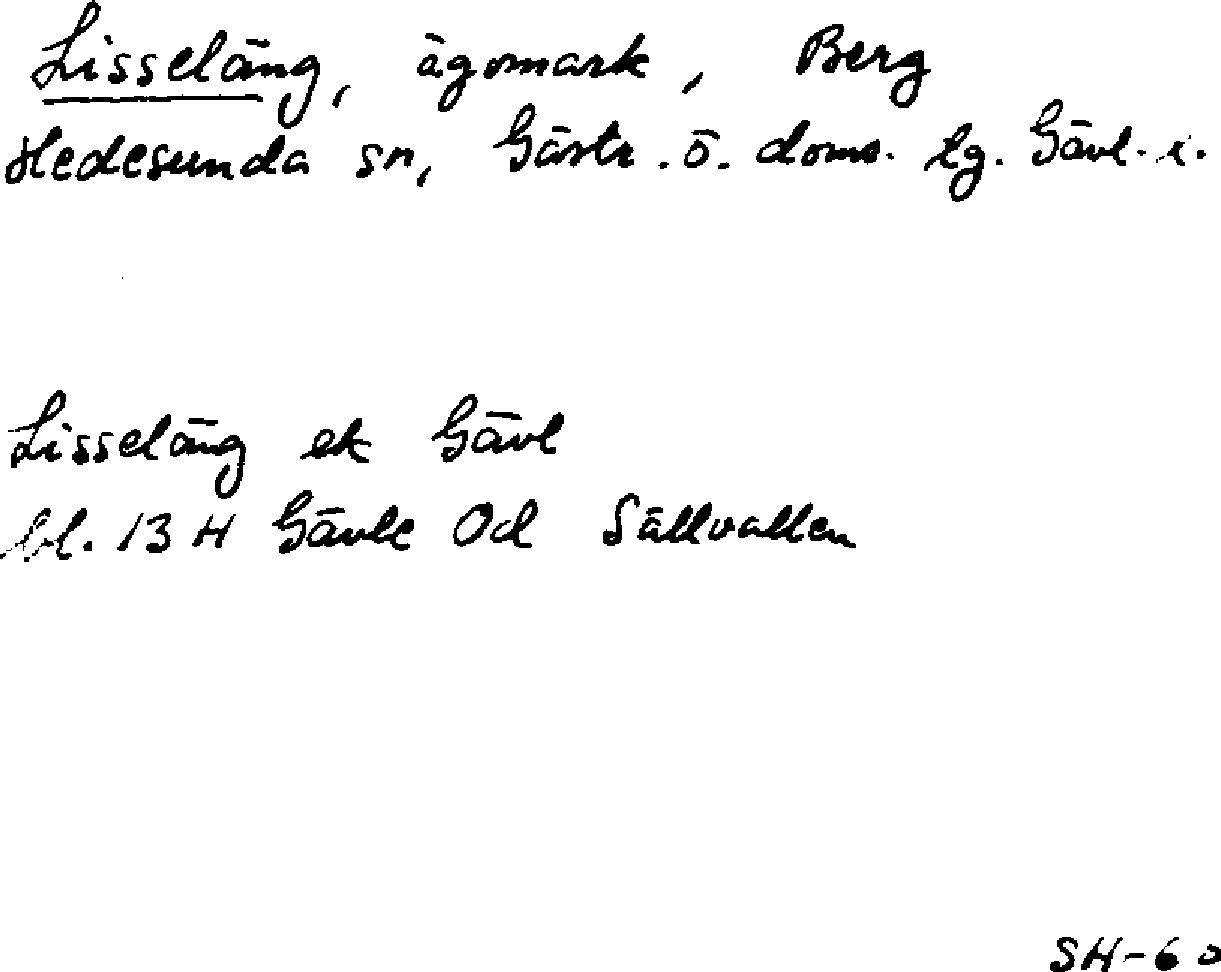 Lisseläng, ägomark, Berg
Hedesunda sn, Gästr. ö. doms. tg. Gävl. l.
Lisseläng ek Gävl
bl. 13 H Gävle 0d Sällvallen
SH-60